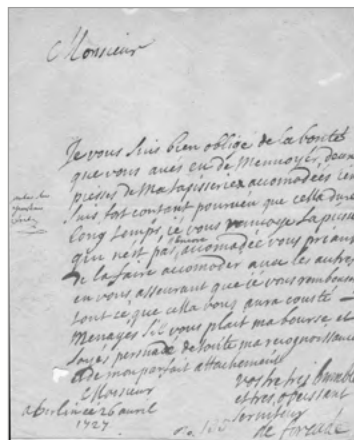 Monsieur
Je vous suis bien obligé de la bonté
que vous avés eu de Mennoyér, deux
pièses de Ma tapisserie accomodées j'en
suis fort contant pourveu que cella dure
long temps, je vous renvoye la pièse
qui n'est pas encore accomodée vous priant
de la faire accomoder avec les autres
en vous asseurant que je vous rembourse
tout ce que cella vous aura cousté
Menages s'il vous plait ma bourse et
soyés persuadé de toute ma recognoissance
et de mon parfait attachement
Monsieur
vostre tres humble
et tres obeissant
serviteur
a Berlin ce 26 avril
1727
de forcade